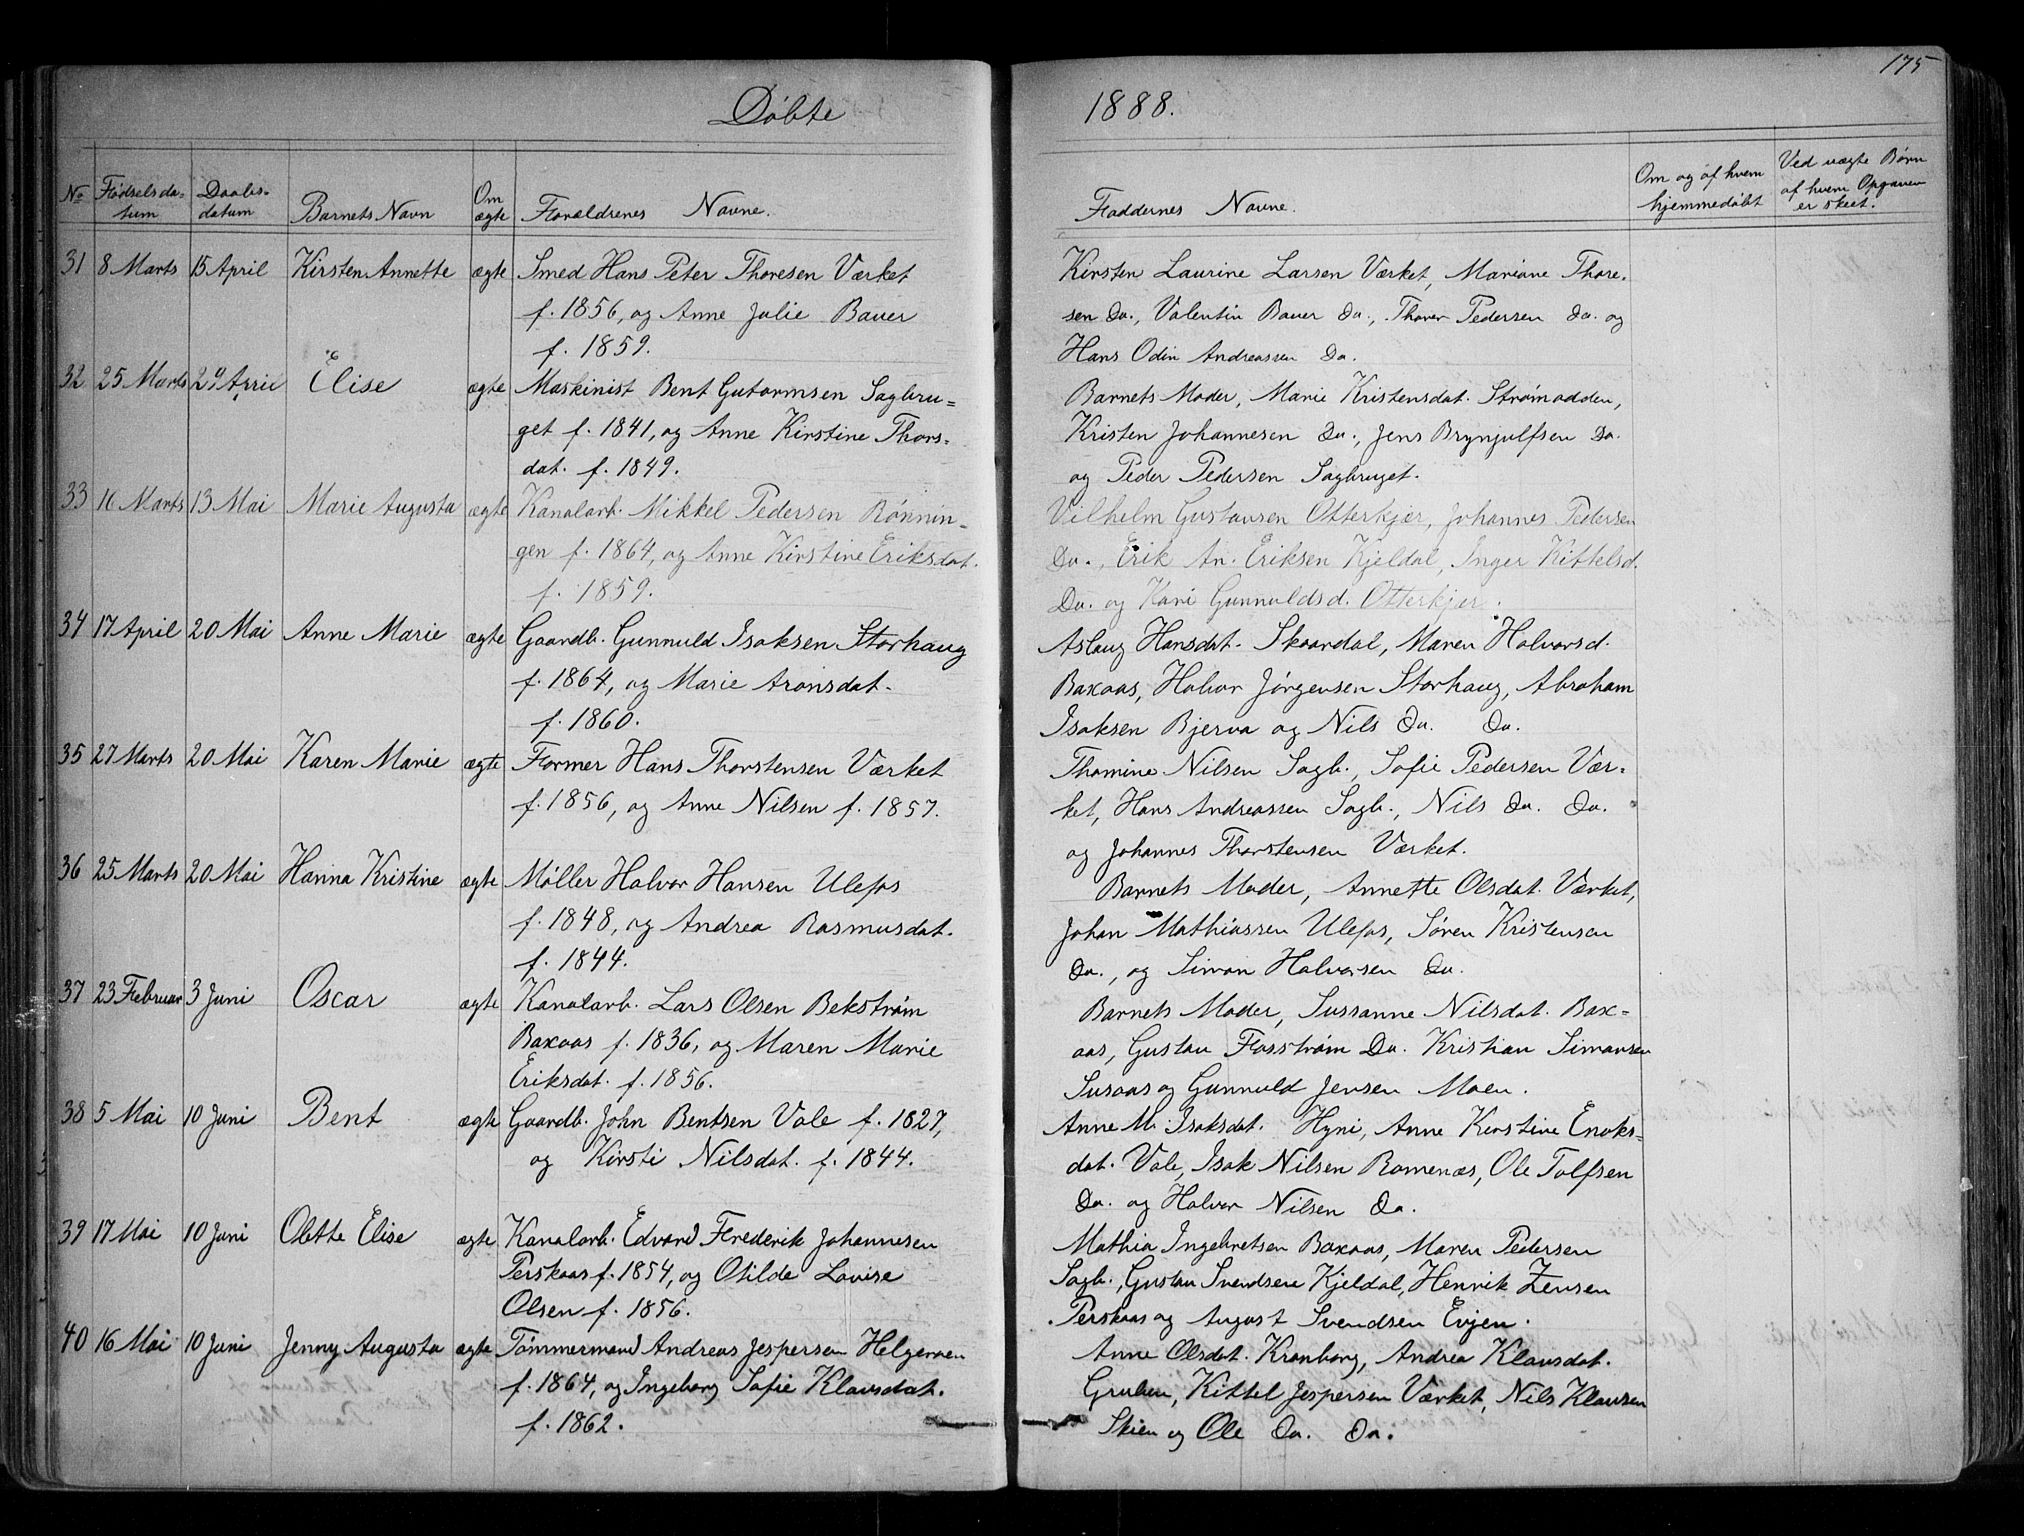 175
Døbte 1888.
No Fødselsda- Daabs- Barnets Navn Om Forældrenes Navne. Faddernes Navne. Om og af hvem Ved uægte Børn
tum datum ægte hjemmedøbt af hvem Opgaven
er skeet.
31 8 Marts 15 April Kirsten Annette ægte Smed Hans Peter Thoresen Værket
f. 1856, og Anne Julie Bauer
f. 1859.
Kirsten Laurine Larsen Værket, Mariane Thore-
sen Do., Valentin Bauer Do., Thorer Pedersen Do. og
Hans Odin Andreassen Do.
32 25 Marts 29 April Elise ægte Maskinist Bent Gutormsen Sagbru=
get f. 1841, og Anne Kirstine Thors-
dat. f. 1849.
Barnets Moder, Marie Kristensdat. Strømodden,
Kristen Johannesen Do., Jens Brynjulfsen Do.
og Peder Pedersen Sagbruget.
33 16 Marts 13 Mai Marie Augusta ægte Kanalarb. Mikkel Pedersen Rønnin-
gen f. 1864, og Anne Kirstine Eriksdat.
f. 1859.
Vilhelm Gustavsen Otterkjær, Johannes Pedersen
Do., Erik An. Eriksen Kjeldal, Inger Kittelsd.
Do. og Kari Gunnuldsd. Otterkjær.
34 17 April 20 Mai Anne Marie ægte Gaardb. Gunnuld Isaksen Storhaug
f. 1864, og Marie Aronsdat.
f. 1860.
Aslaug Hansdat. Skaardal, Maren Halvorsd.
Baxaas, Halvor Jörgensen Storhaug, Abraham
Isaksen Bjerva og Nils Do. Do.
35 27 Marts 20 Mai Karen Marie ægte Former Hans Thorstensen Værket
f. 1856, og Anne Nilsen f. 1857.
Thomine Nilsen Sagb., Sofie Pedersen Vær-
ket, Hans Andreassen Sagb., Nils Do. Do.
og Johannes Thorstensen Værket.
36 25 Marts 20 Mai Hanna Kristine ægte Møller Halvor Hansen Ulefos
f. 1848, og Andrea Rasmusdat.
f. 1844.
Barnets Moder, Annette Olsdat. Værket,
Johan Mathiassen Ulefos, Søren Kristensen
Do., og Simon Halvorsen Do.
37 23 Februar 3 Juni Oscar ægte Kanalarb. Lars Olsen Bekstrøm
Baxaas f. 1836, og Maren Marie
Eriksdat. f. 1856.
Barnets Moder, Sussanne Nilsdat. Bax=
aas, Gustav Flosstrøm Do. Kristian Simonsen
Susaas og Gunnuld Jensen Moen.
38 5 Mai 10 Juni Bent ægte Gaardb. John Bentsen Vale f. 1827,
og Kirsti Nilsdat. f. 1844.
Anne M. Isaksdat. Hyni, Anne Kirstine Enoks=
dat. Vale, Isak Nilsen Romenæs, Ole Tolfsen
Do. og Halvor Nilsen Do.
39 17 Mai 10 Juni Olette Elise ægte Kanalarb. Edvard Frederik Johannesen
Perskaas f. 1854, og Otilde Lovise
Olsen f. 1856.
Mathia Ingebretsen Baxaas, Maren Pedersen
Sagb., Gustav Svendsen Kjeldal, Henrik Jensen
Perskaas og August Svendsen Evjen.
40 16 Mai 10 Juni Jenny Augusta ægte Tømmermand Andreas Jespersen Helgeroen
f. 1864, og Ingeborg Sofie Klausdat.
f. 1862.
Anne Olsdat. Kronborg, Andrea Klausdat.
Gruben, Kittel Jespersen Værket, Nils Klausen
Skien og Ole Do. Do.